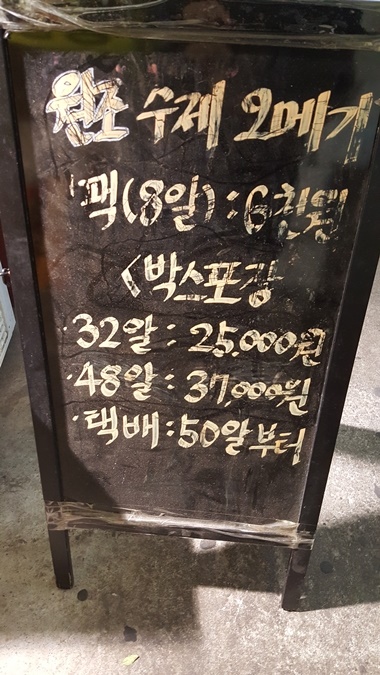 원조 수제 오메기
·팩(8알):6천원
<박스포장
·32알:25,000원
·48알:37,000원
·택배:50알부터